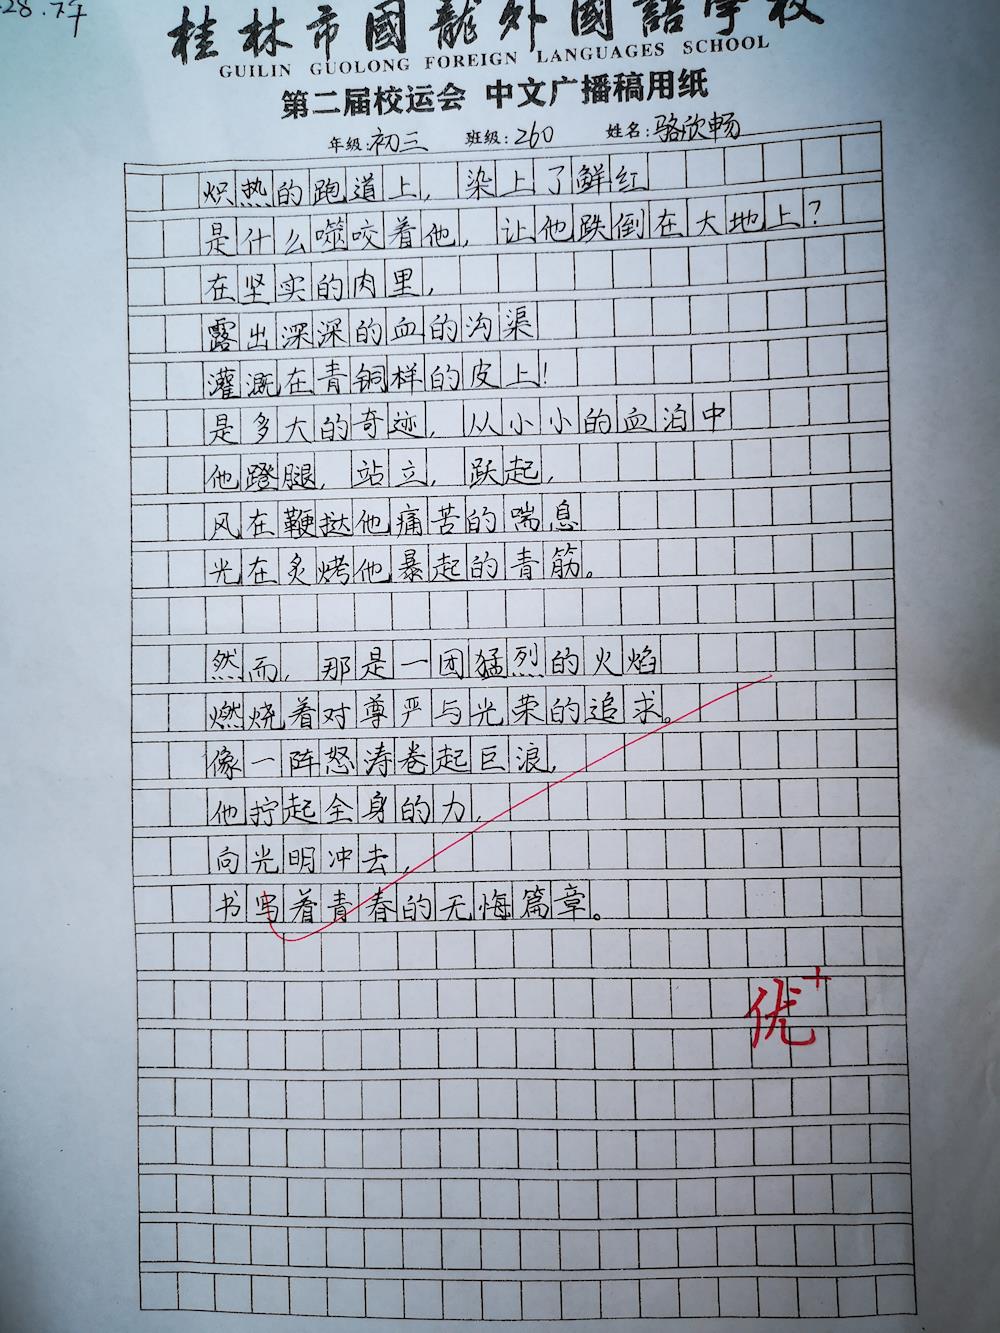 28.下午
桂林市國龍外國語學校
GUILIN GUOLONG FOREIGN LANGUAGES SCHOOL
第二届校运会 中文广播稿用纸
年级:初三 班级:260 姓名:骆欣畅
炽热的跑道上，染上了鲜红
是什么噬咬着他，让他跌倒在大地上？
在坚实的肉里，
露出深深的血的沟渠
灌溉在青铜样的皮上！
是多大的奇迹，从小小的血泊中
他蹬腿，站立，跃起，
风在鞭挞他痛苦的喘息
光在炙烤他暴起的青筋。
然而，那是一团猛烈的火焰
燃烧着对尊严与光荣的追求。
像一阵怒涛卷起巨浪，
他拧起全身的力，
向光明冲去，
书写着青春的无悔篇章。
优+